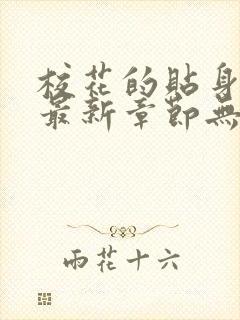 校花的貼身
最新章節無
雨花十六